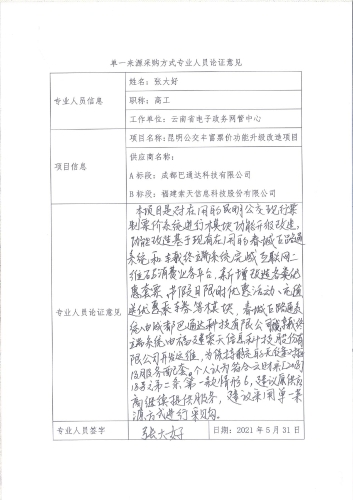 单一来源采购方式专业人员论证意见
专业人员信息
姓名：张大好
职称：高工
工作单位：云南省电子政务网管中心
项目信息
项目名称：昆明公交丰富票价功能升级改造项目
供应商名称：
A标段：成都巴通达科技有限公司
B标段：福建索天信息科技股份有限公司
专业人员论证意见
本项目是对在用的昆明公交现行票
制票价系统进行模块功能升级改造，
功能改造基于现有在用的春城e路通
系统和车载终端系统完成互联网二
维码消费业务平台，新增改造各类优
惠套票、节假日限时优惠活动、充值
送优惠乘车券等模块，春城e路通系
统由成都巴通达科技有限公司
端系统由福建索天信息科技股份有
限公司开发运维，为保持
服务配套。个人认为符合
第二条第一款情形6，建议原供应
商继续提供服务，建议采用单一来
源方式进行采购。
专业人员签字
张大好
日期：2021年5月31日